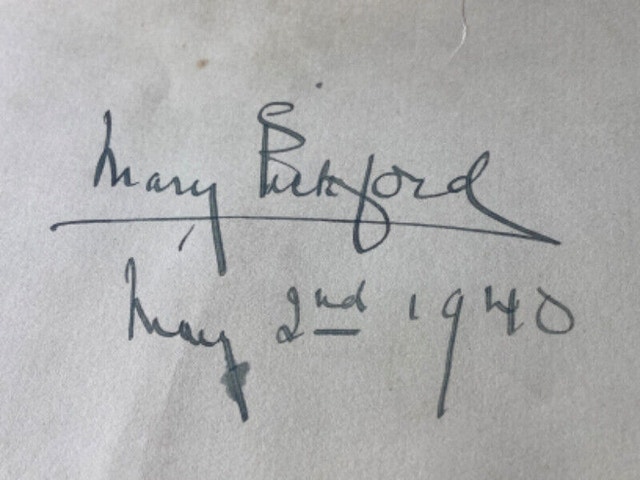 Mary Pickford
May 2nd 1940